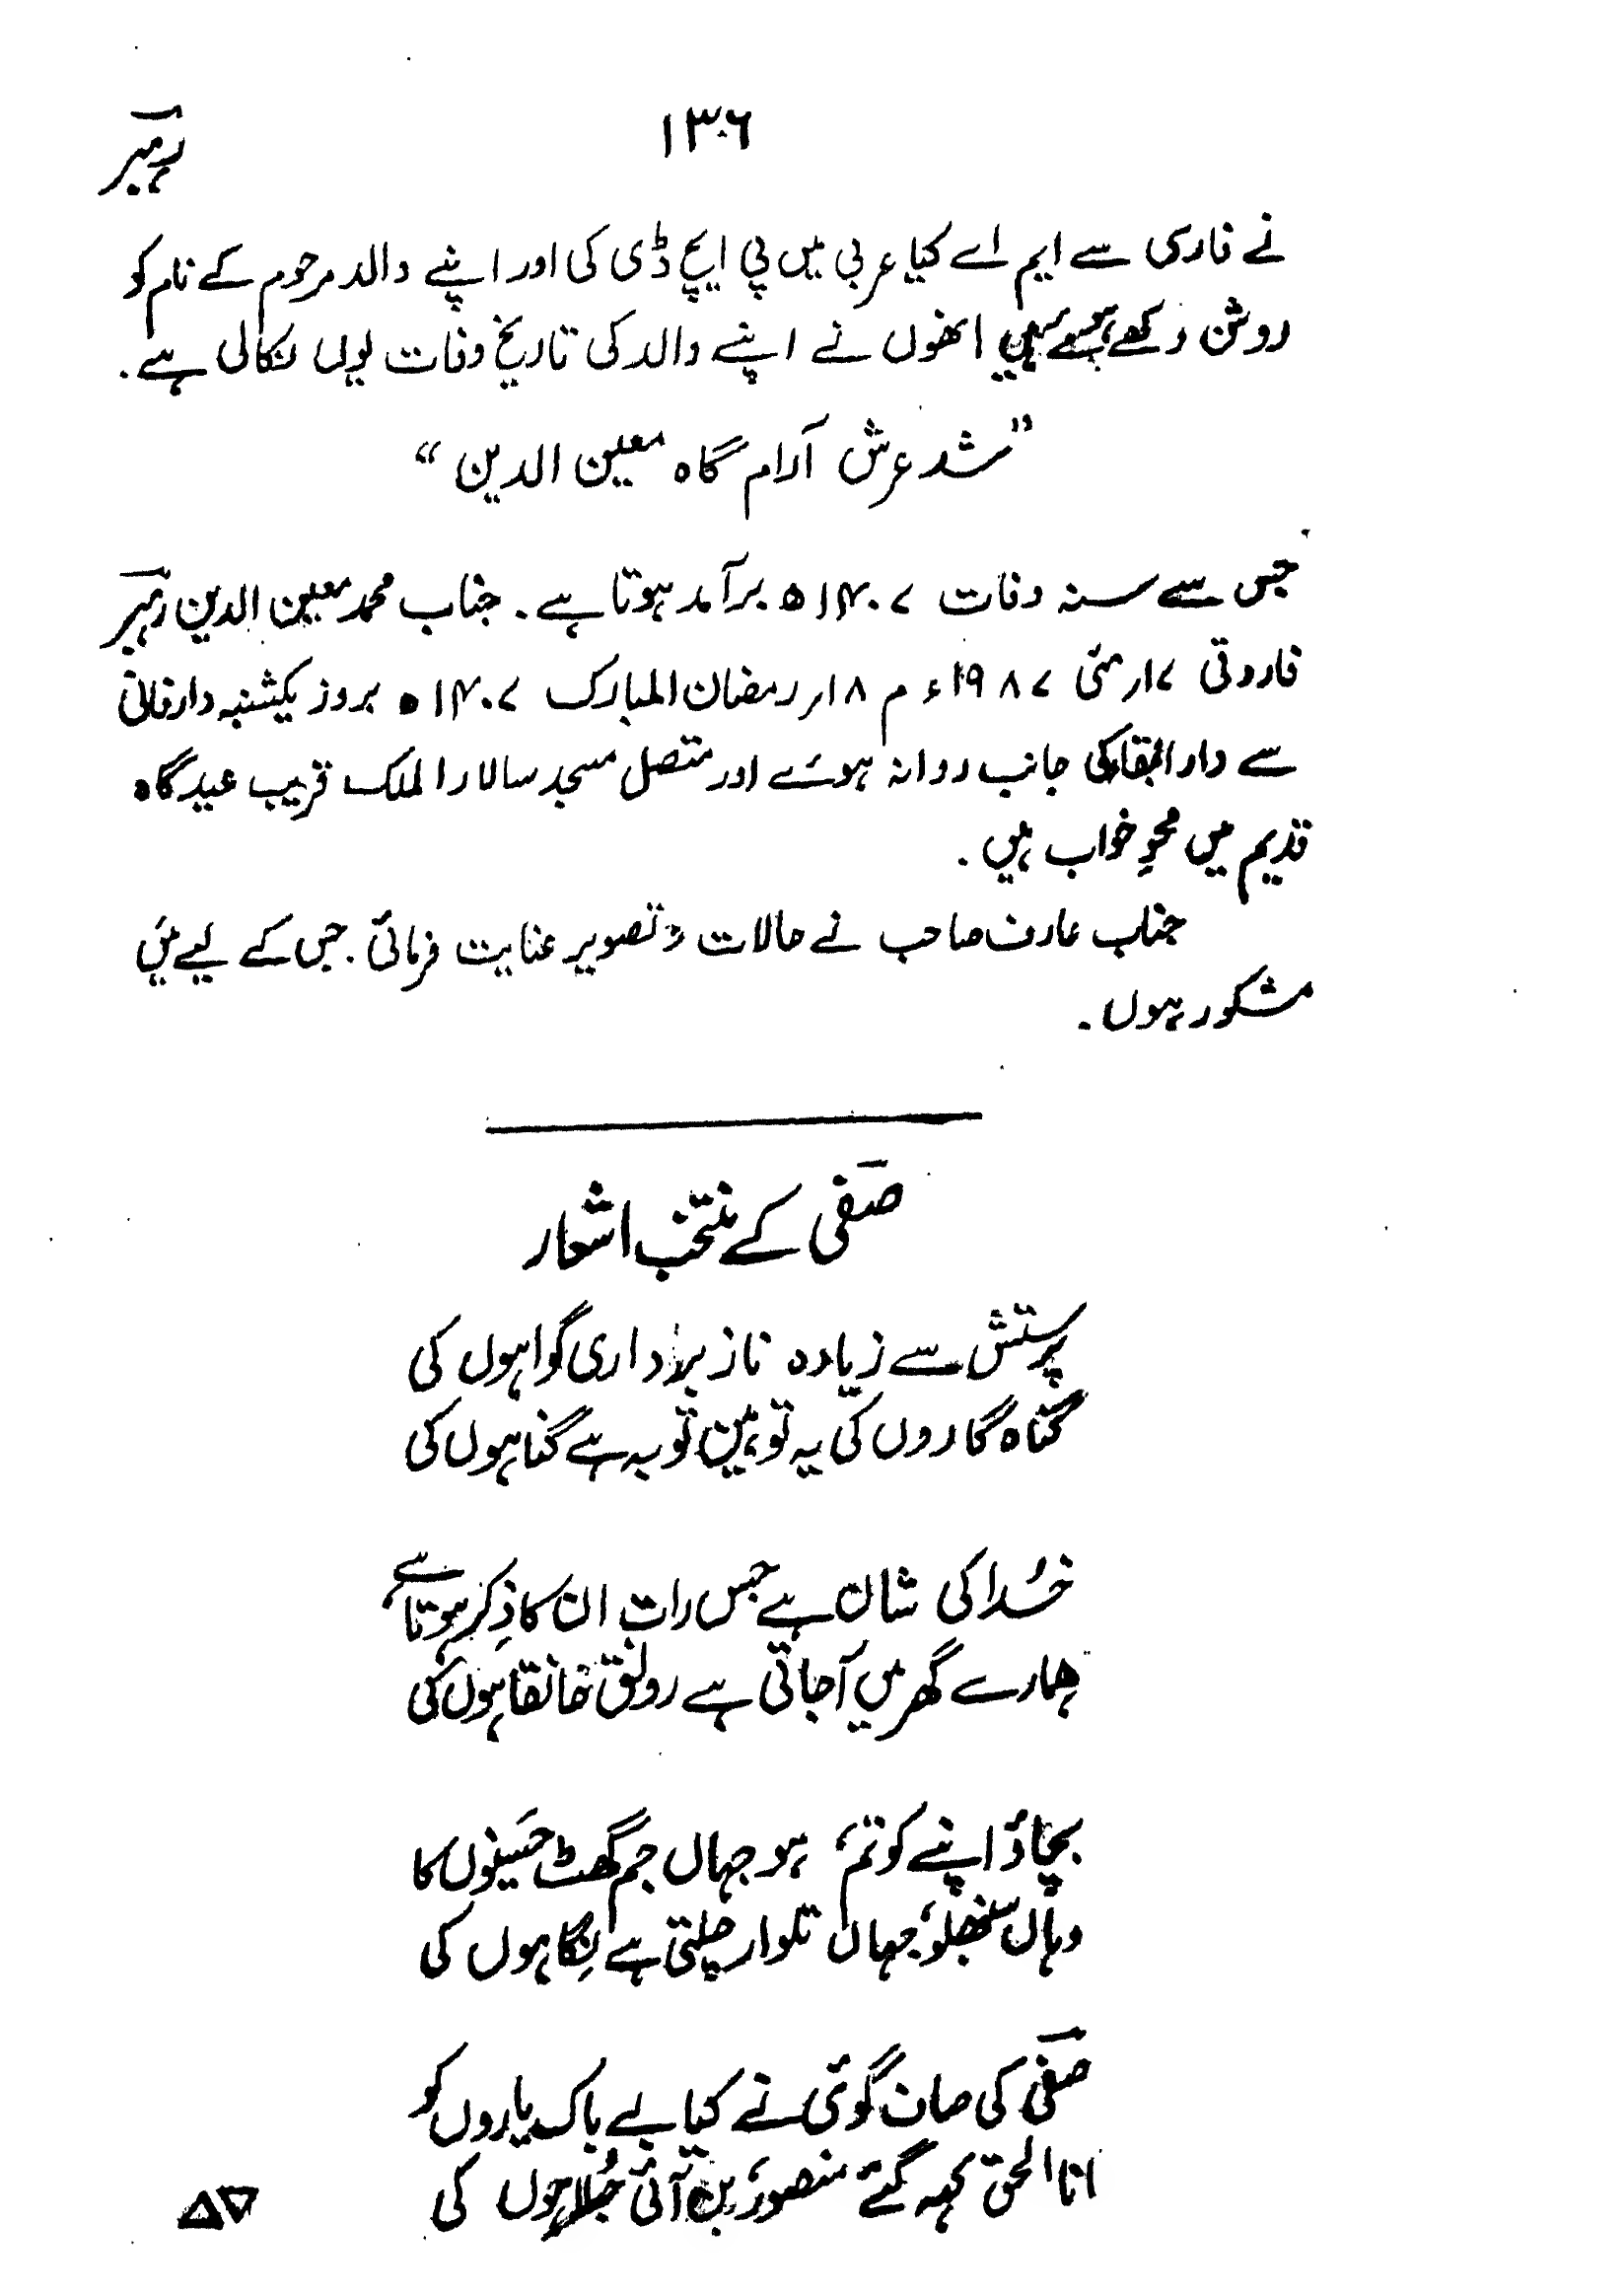 ۱۳۶
رہبر
نے فارسی سے ایم اے کیا عربی میں پی ایچ ڈی کی اور اپنے والد مرحوم کے نام کو
روشن رکھے ہوئے ہیں انھوں نے اپنے والد کی تاریخ وفات یوں نکالی ہے۔
"شد عرش آرام گاہ معین الدین"
جس سے سنہ وفات ۱۴۰۷ھ برآمد ہوتا ہے۔ جناب محمد معین الدین رہبر
فاروقی ۱۷؍مئی ۱۹۸۷ء م ۱۸؍رمضان المبارک ۱۴۰۷ھ بروز یکشنبہ دارفانی
سے دارالبقاء کی جانب روانہ ہوئے اور متصل مسجد سالارالملک قریب عیدگاہ
قدیم میں محوِ خواب ہیں۔
جناب عارف صاحب نے حالات و تصویر عنایت فرمائی۔ جس کے لیے میَں
مشکور ہوں۔
صفی کے منتخب اشعار
پرستش سے زیادہ ناز برداری گواہوں کی
گناہ گاروں کی یہ توہین توبہ ہے گناہوں کی
خُدا کی شان ہے جس رات ان کا ذِکر ہوتا ہے
ہمارے گھر میں آجاتی ہے رونق خانقاہوں کی
بچاؤ اپنے کو تم، ہو جہاں جم گھٹ حَسینوں کا
وہاں سنبھلو، جہاں تلوار چلتی ہے نِگاہوں کی
صفی کی صاف گوئی نے کیا بے باک یاروں کو
اناالحق کہہ گئے منصور، بن آئی جُلاہوں کی